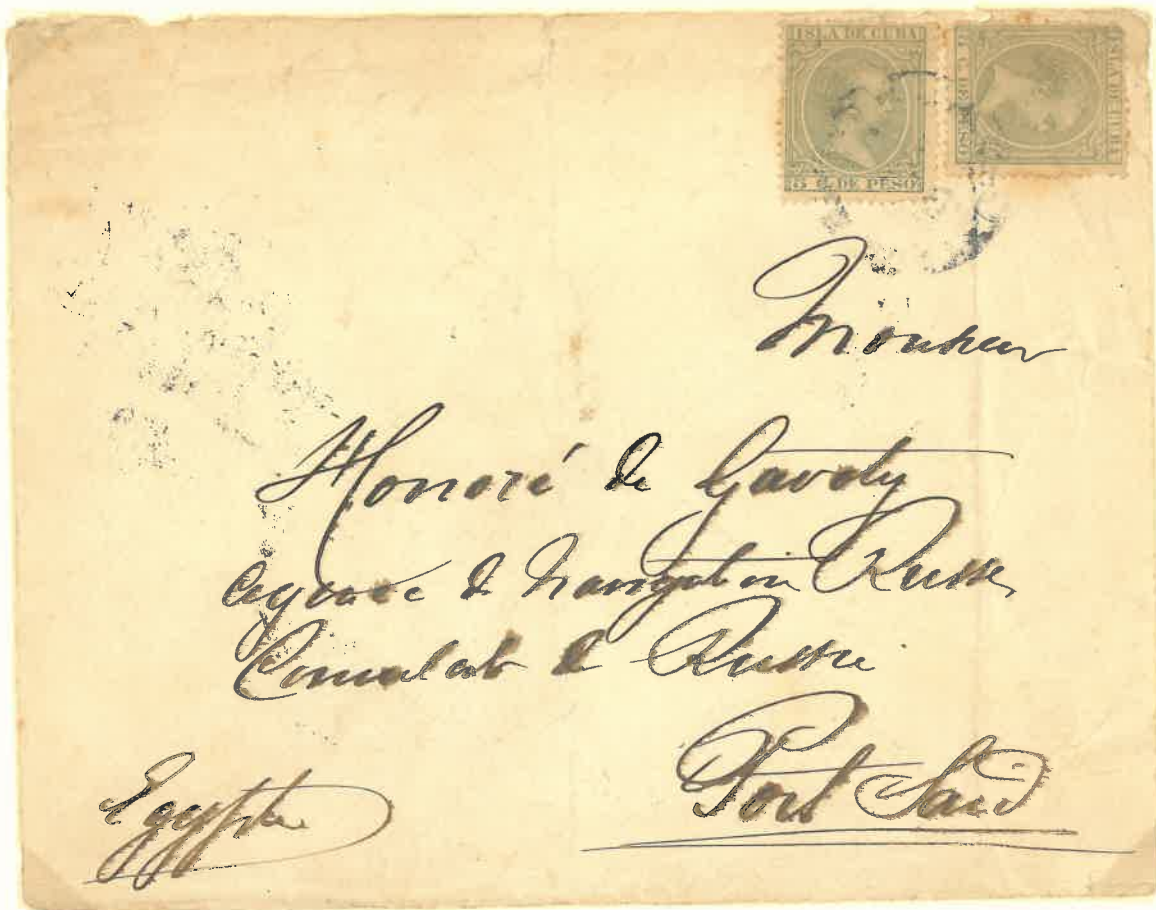 ISLA DE CUBA
5 C. DE PESO
ISLA DE CUBA
5 C. DE PESO
Monsieur
Honoré de Gavoty
Agence de Navigation Russe
Consulat de Russie
Port Saïd
Egypte